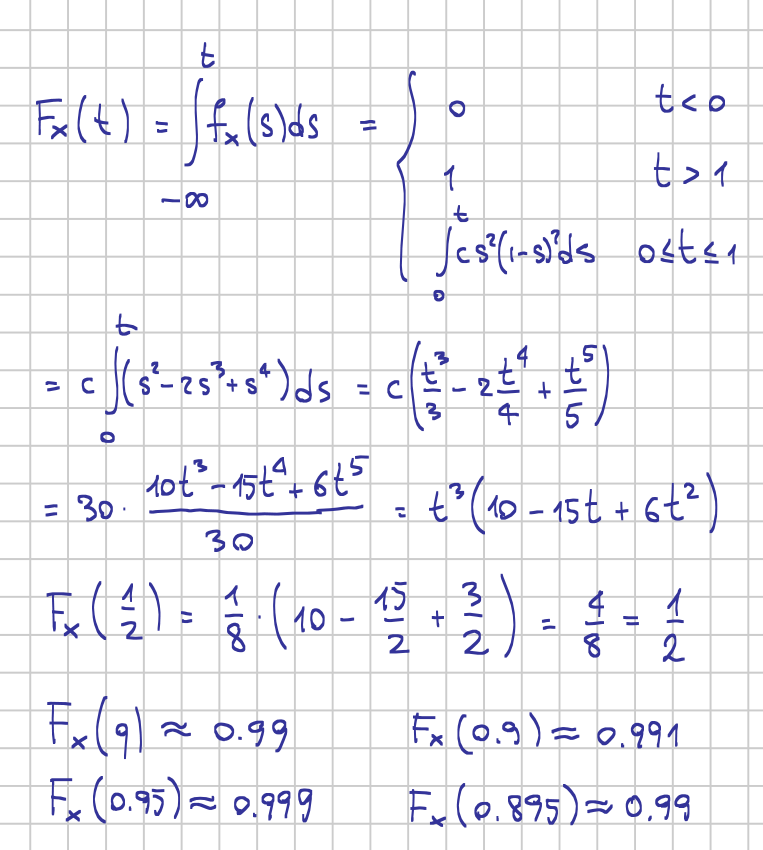 F_x(t) = ∫_{-∞}^{t} f_x(s)ds = { 0 t<0
1 t>1
∫_0^t cs²(1-s)²ds 0≤t≤1
= c ∫_0^t (s² - 2s³ + s⁴) ds = c(t³/3 - 2 t⁴/4 + t⁵/5)
= 30 · (10t³ - 15t⁴ + 6t⁵)/30 = t³(10 - 15t + 6t²)
F_x(1/2) = 1/8 · (10 - 15/2 + 3/2) = 4/8 = 1/2
F_x(q) ≈ 0.99 F_x(0.9) ≈ 0.991
F_x(0.95) ≈ 0.999 F_x(0.895) ≈ 0.99